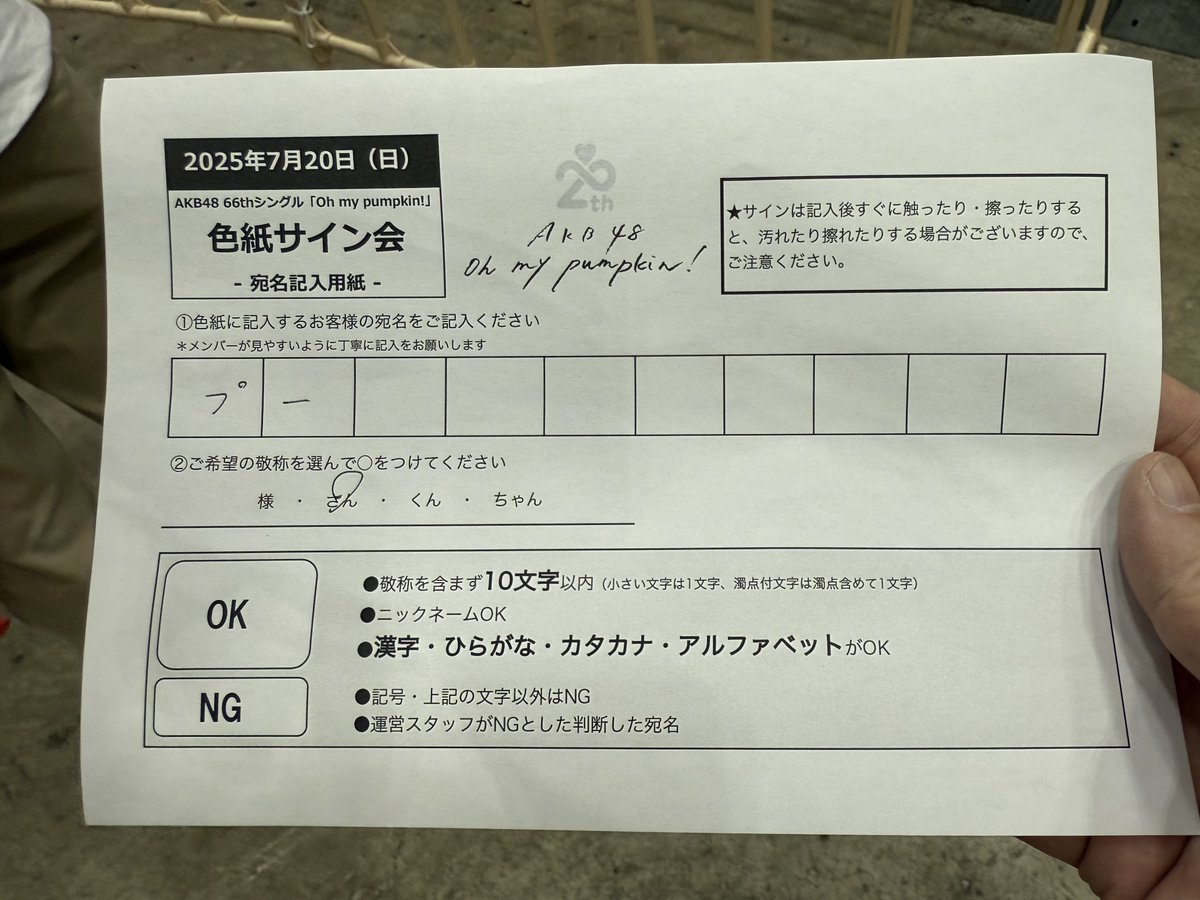 2025年7月20日（日）
AKB48 66thシングル「Oh my pumpkin!」
色紙サイン会
- 宛名記入用紙 -
20th
AKB48
Oh my pumpkin!
★サインは記入後すぐに触ったり・擦ったりする
と、汚れたり擦れたりする場合がございますので、
ご注意ください。
①色紙に記入するお客様の宛名をご記入ください
＊メンバーが見やすいように丁寧に記入をお願いします
プー
②ご希望の敬称を選んで○をつけてください
様 ・ さん ・ くん ・ ちゃん
OK
●敬称を含まず10文字以内（小さい文字は1文字、濁点付文字は濁点含めて1文字）
●ニックネームOK
●漢字・ひらがな・カタカナ・アルファベットがOK
NG
●記号・上記の文字以外はNG
●運営スタッフがNGとした判断した宛名